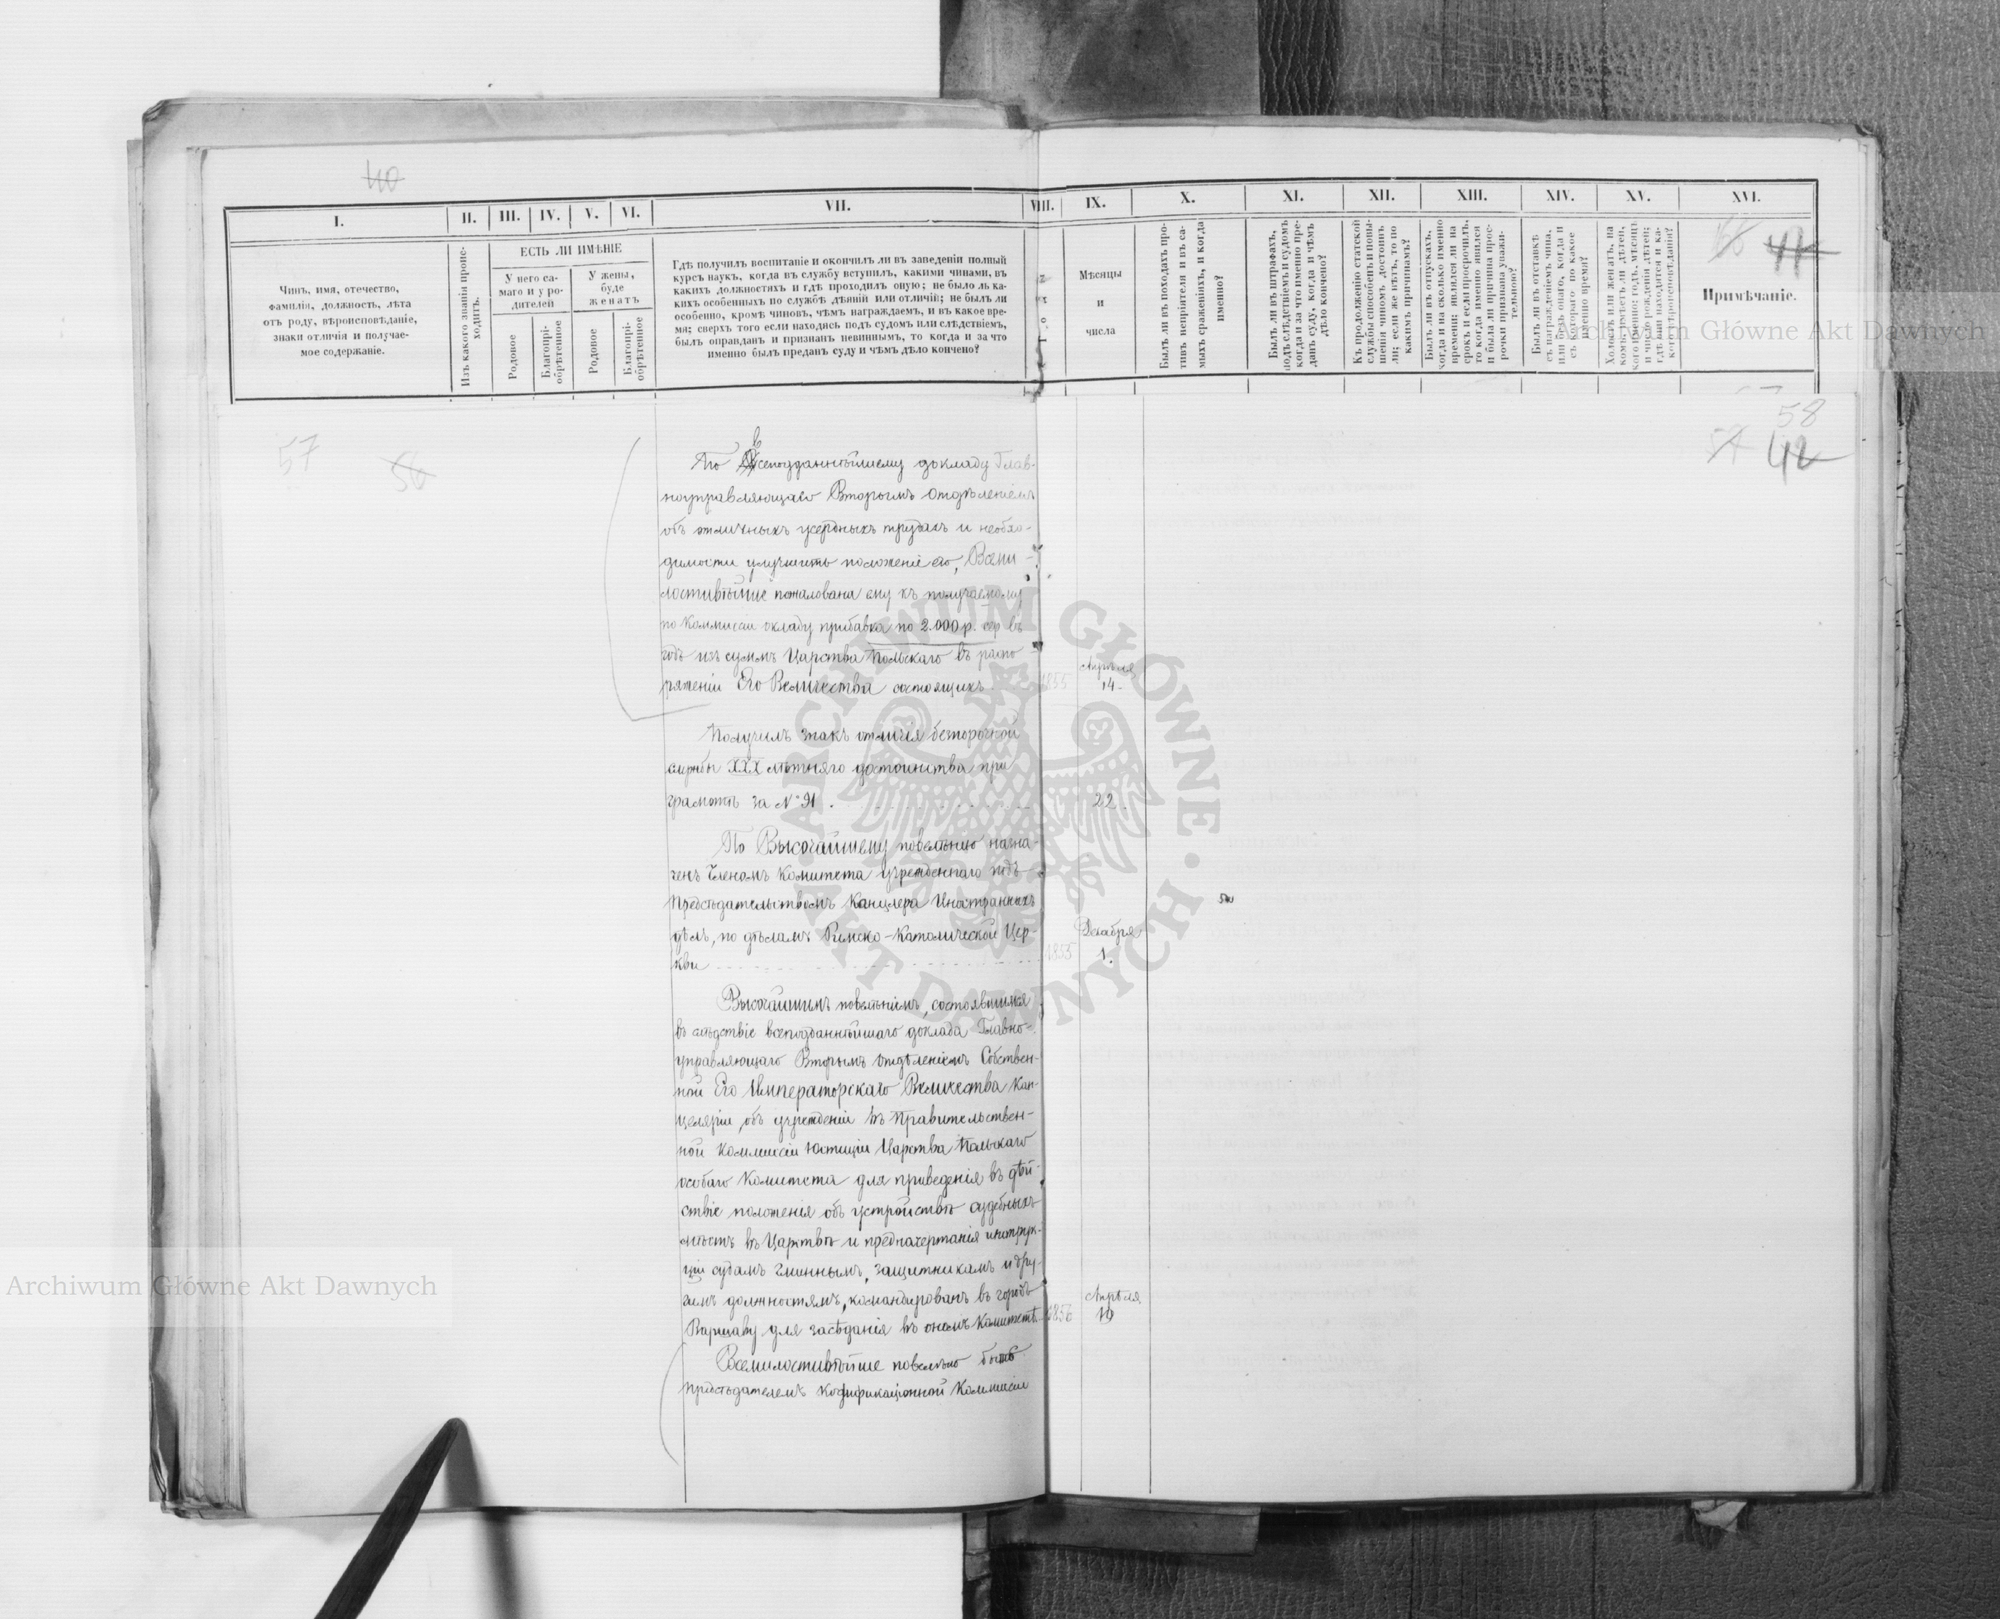 40
I.
II.
III.
IV.
V.
VI.
VII.
VIII.
IX.
X.
XI.
XII.
XIII.
XIV.
XV.
XVI.
Чинъ, имя, отечество,
фамилія, должность, лѣта
отъ роду, вѣроисповѣданіе,
знаки отличія и получае-
мое содержаніе.
Изъ какого званія проис-
ходитъ.
ЕСТЬ ЛИ ИМѢНІЕ
У него са-
маго и у ро-
дителей
У жены,
буде
женатъ
Родовое
Благопрі-
обрѣтенное
Родовое
Благопрі-
обрѣтенное
Гдѣ получилъ воспитаніе и окончилъ ли въ заведеніи полный
курсъ наукъ, когда въ службу вступилъ, какими чинами, въ
какихъ должностяхъ и гдѣ проходилъ оную; не было ль ка-
кихъ особенныхъ по службѣ дѣяній или отличій; не былъ ли
особенно, кромѣ чиновъ, чѣмъ награждаемъ, и въ какое вре-
мя; сверхъ того если находясь подъ судомъ или слѣдствіемъ,
былъ оправданъ и признанъ невиннымъ, то когда и за что
именно былъ преданъ суду и чѣмъ дѣло кончено?
Мѣсяцы
и
числа
Былъ ли въ походахъ про-
тивъ непріятеля и въ са-
мыхъ сраженіяхъ, и когда
именно?
Былъ ли въ штрафахъ,
подъ слѣдствіемъ и судомъ
когда и за что именно пре-
данъ суду, когда и чѣмъ
дѣло кончено?
Къ продолженію статской
службы способенъ и повы-
шенія чиномъ достоинъ
ли; если же нѣтъ, то по
какимъ причинамъ?
Былъ ли въ отпускахъ,
когда и на сколько именно
времени; явился ли на
срокъ и если просрочилъ,
то когда именно явился
и была ли причина прос-
рочки признана уважи-
тельною?
Былъ ли въ отставкѣ
съ награжденіемъ чина,
или безъ онаго, когда и
съ котораго по какое
именно время?
Холостъ или женатъ, на
комъ, имѣетъ ли дѣтей,
кого именно; годъ, мѣсяцъ
и число рожденія дѣтей;
гдѣ они находятся и ка-
кого вѣроисповѣданія?
Примѣчаніе.
41
57
56
58
42
По Всеподданнѣйшему докладу Глав-
ноуправляющаго Вторымъ Отдѣленіемъ
объ отличныхъ усердныхъ трудахъ и необхо-
димости улучшить положеніе его, Всеми-
лостивѣйше пожалована ему къ получаемому
по Коммисіи окладу прибавка по 2.000 р. сер въ
годъ изъ суммъ Царства Польскаго въ распо-
ряженіи Его Величества состоящихъ 1855 Апрѣля
14.
Получилъ знакъ отличія безпорочной
службы XXX лѣтняго достоинства при
грамотѣ за № 91. 22.
По Высочайшему повелѣнію назна-
ченъ Членомъ Комитета учрежденнаго подъ
Предсѣдательствомъ Канцлера Иностранныхъ
дѣлъ, по дѣламъ Римско-Католической Цер- Декабря
кви 1855 1.
Высочайшимъ повелѣніемъ, состоявшимся
въ слѣдствіе всеподданнѣйшаго доклада Главно-
управляющаго Вторымъ Отдѣленіемъ Собствен-
ной Его Императорскаго Величества Кан-
целяріи, объ учрежденіи въ Правительствен-
ной Коммисіи Юстиціи Царства Польскаго
особаго Комитета для приведенія въ дѣй-
ствіе положенія объ устройствѣ судебныхъ
мѣстъ въ Царствѣ и предначертанія инструк-
ціи судамъ гминнымъ, защитникамъ и дру-
гимъ должностямъ, командированъ въ городъ Апрѣля
Варшаву для засѣданія въ ономъ Комитетѣ. 1856 19
Всемилостивѣйше повелѣно быть
Предсѣдателемъ Кодификаціонной Коммисіи
ARCHIWUM GŁÓWNE AKT DAWNYCH
Archiwum Główne Akt Dawnych
Archiwum Główne Akt Dawnych